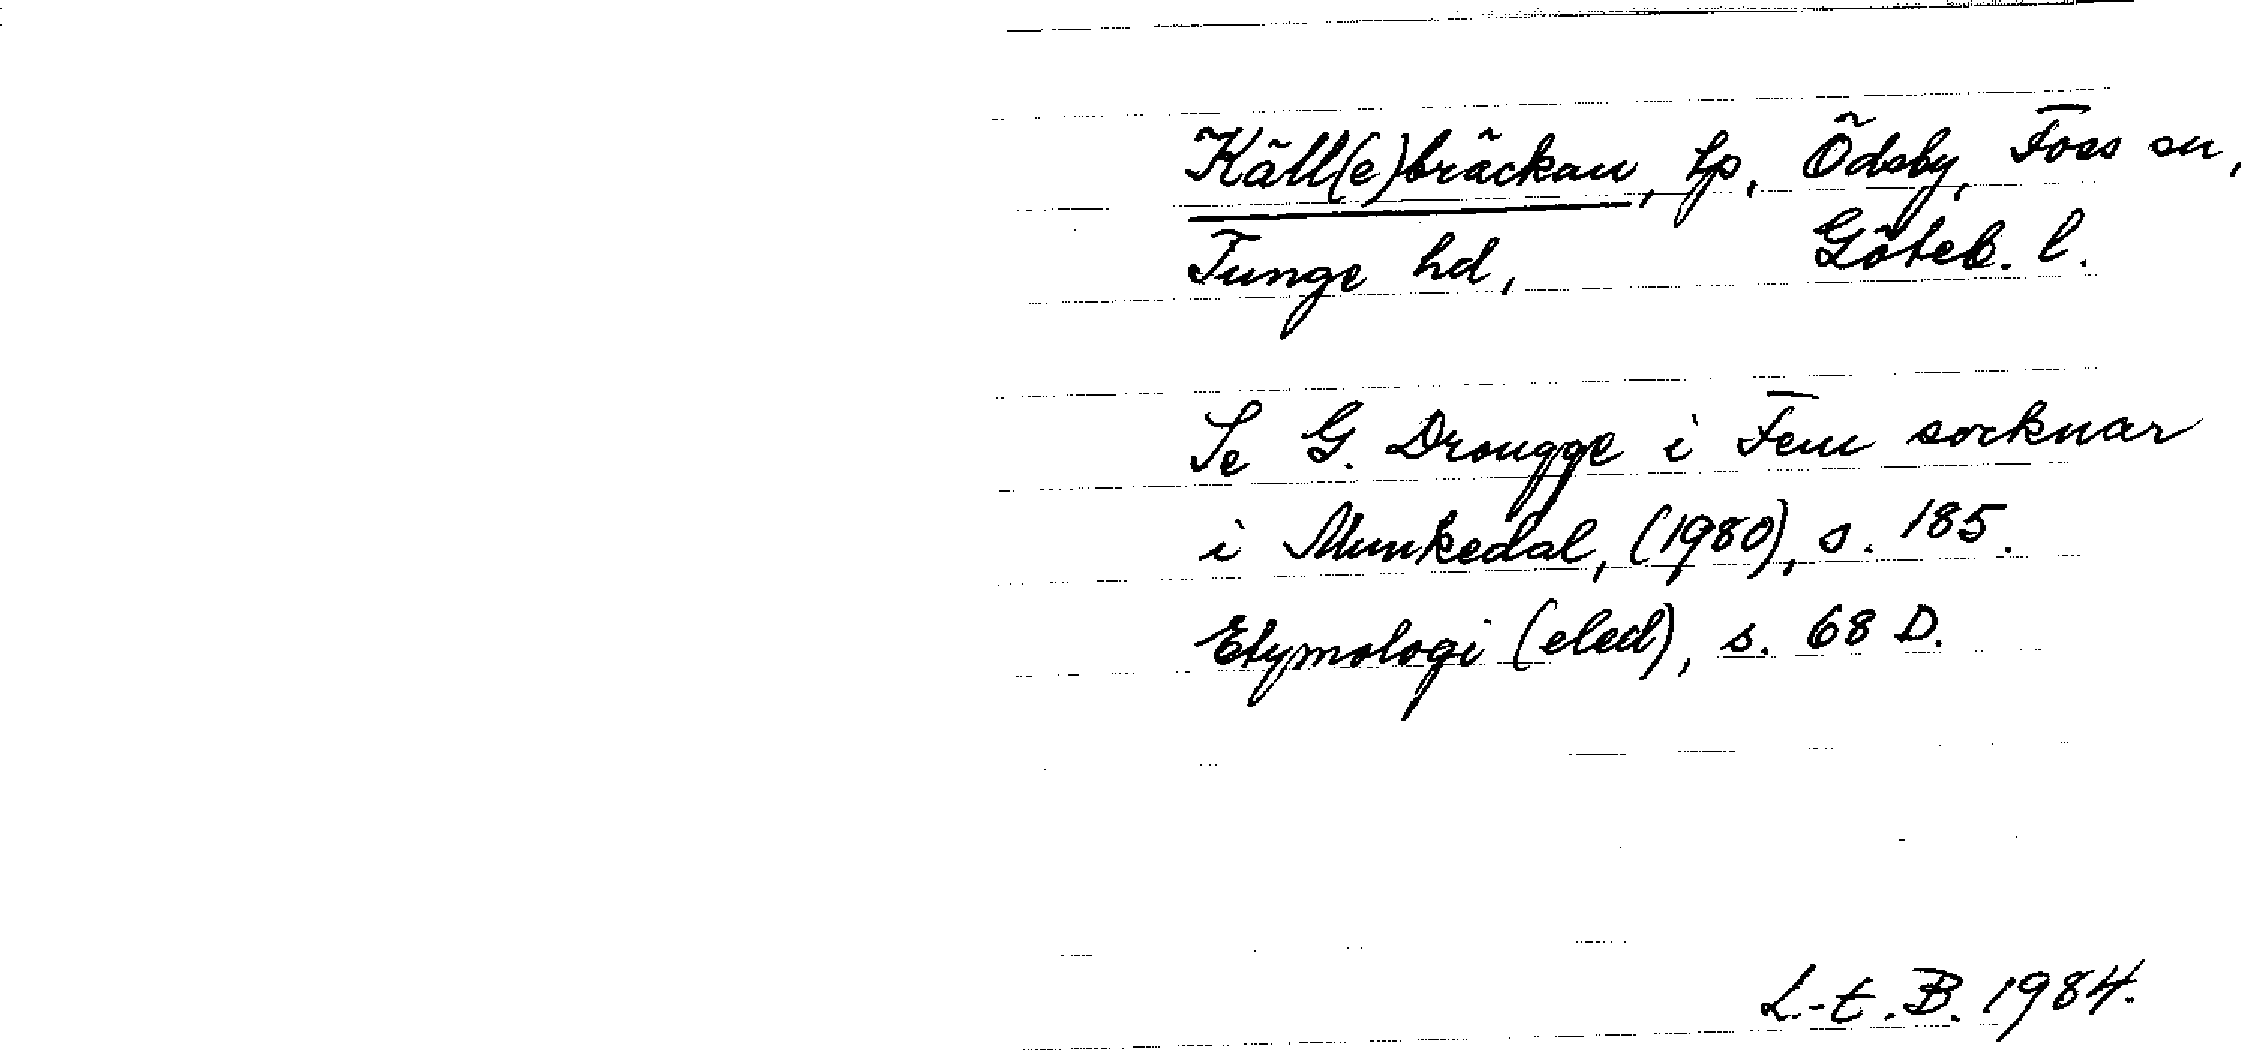 Käll(e)bräckan, tp, Ödsby, Foss sn,
Tunge hd, Göteb. l.
Se G. Drougge i Fem socknar
i Munkedal, (1980), s. 185.
Etymologi (eled), s. 68 D.
L-t. B. 1984.